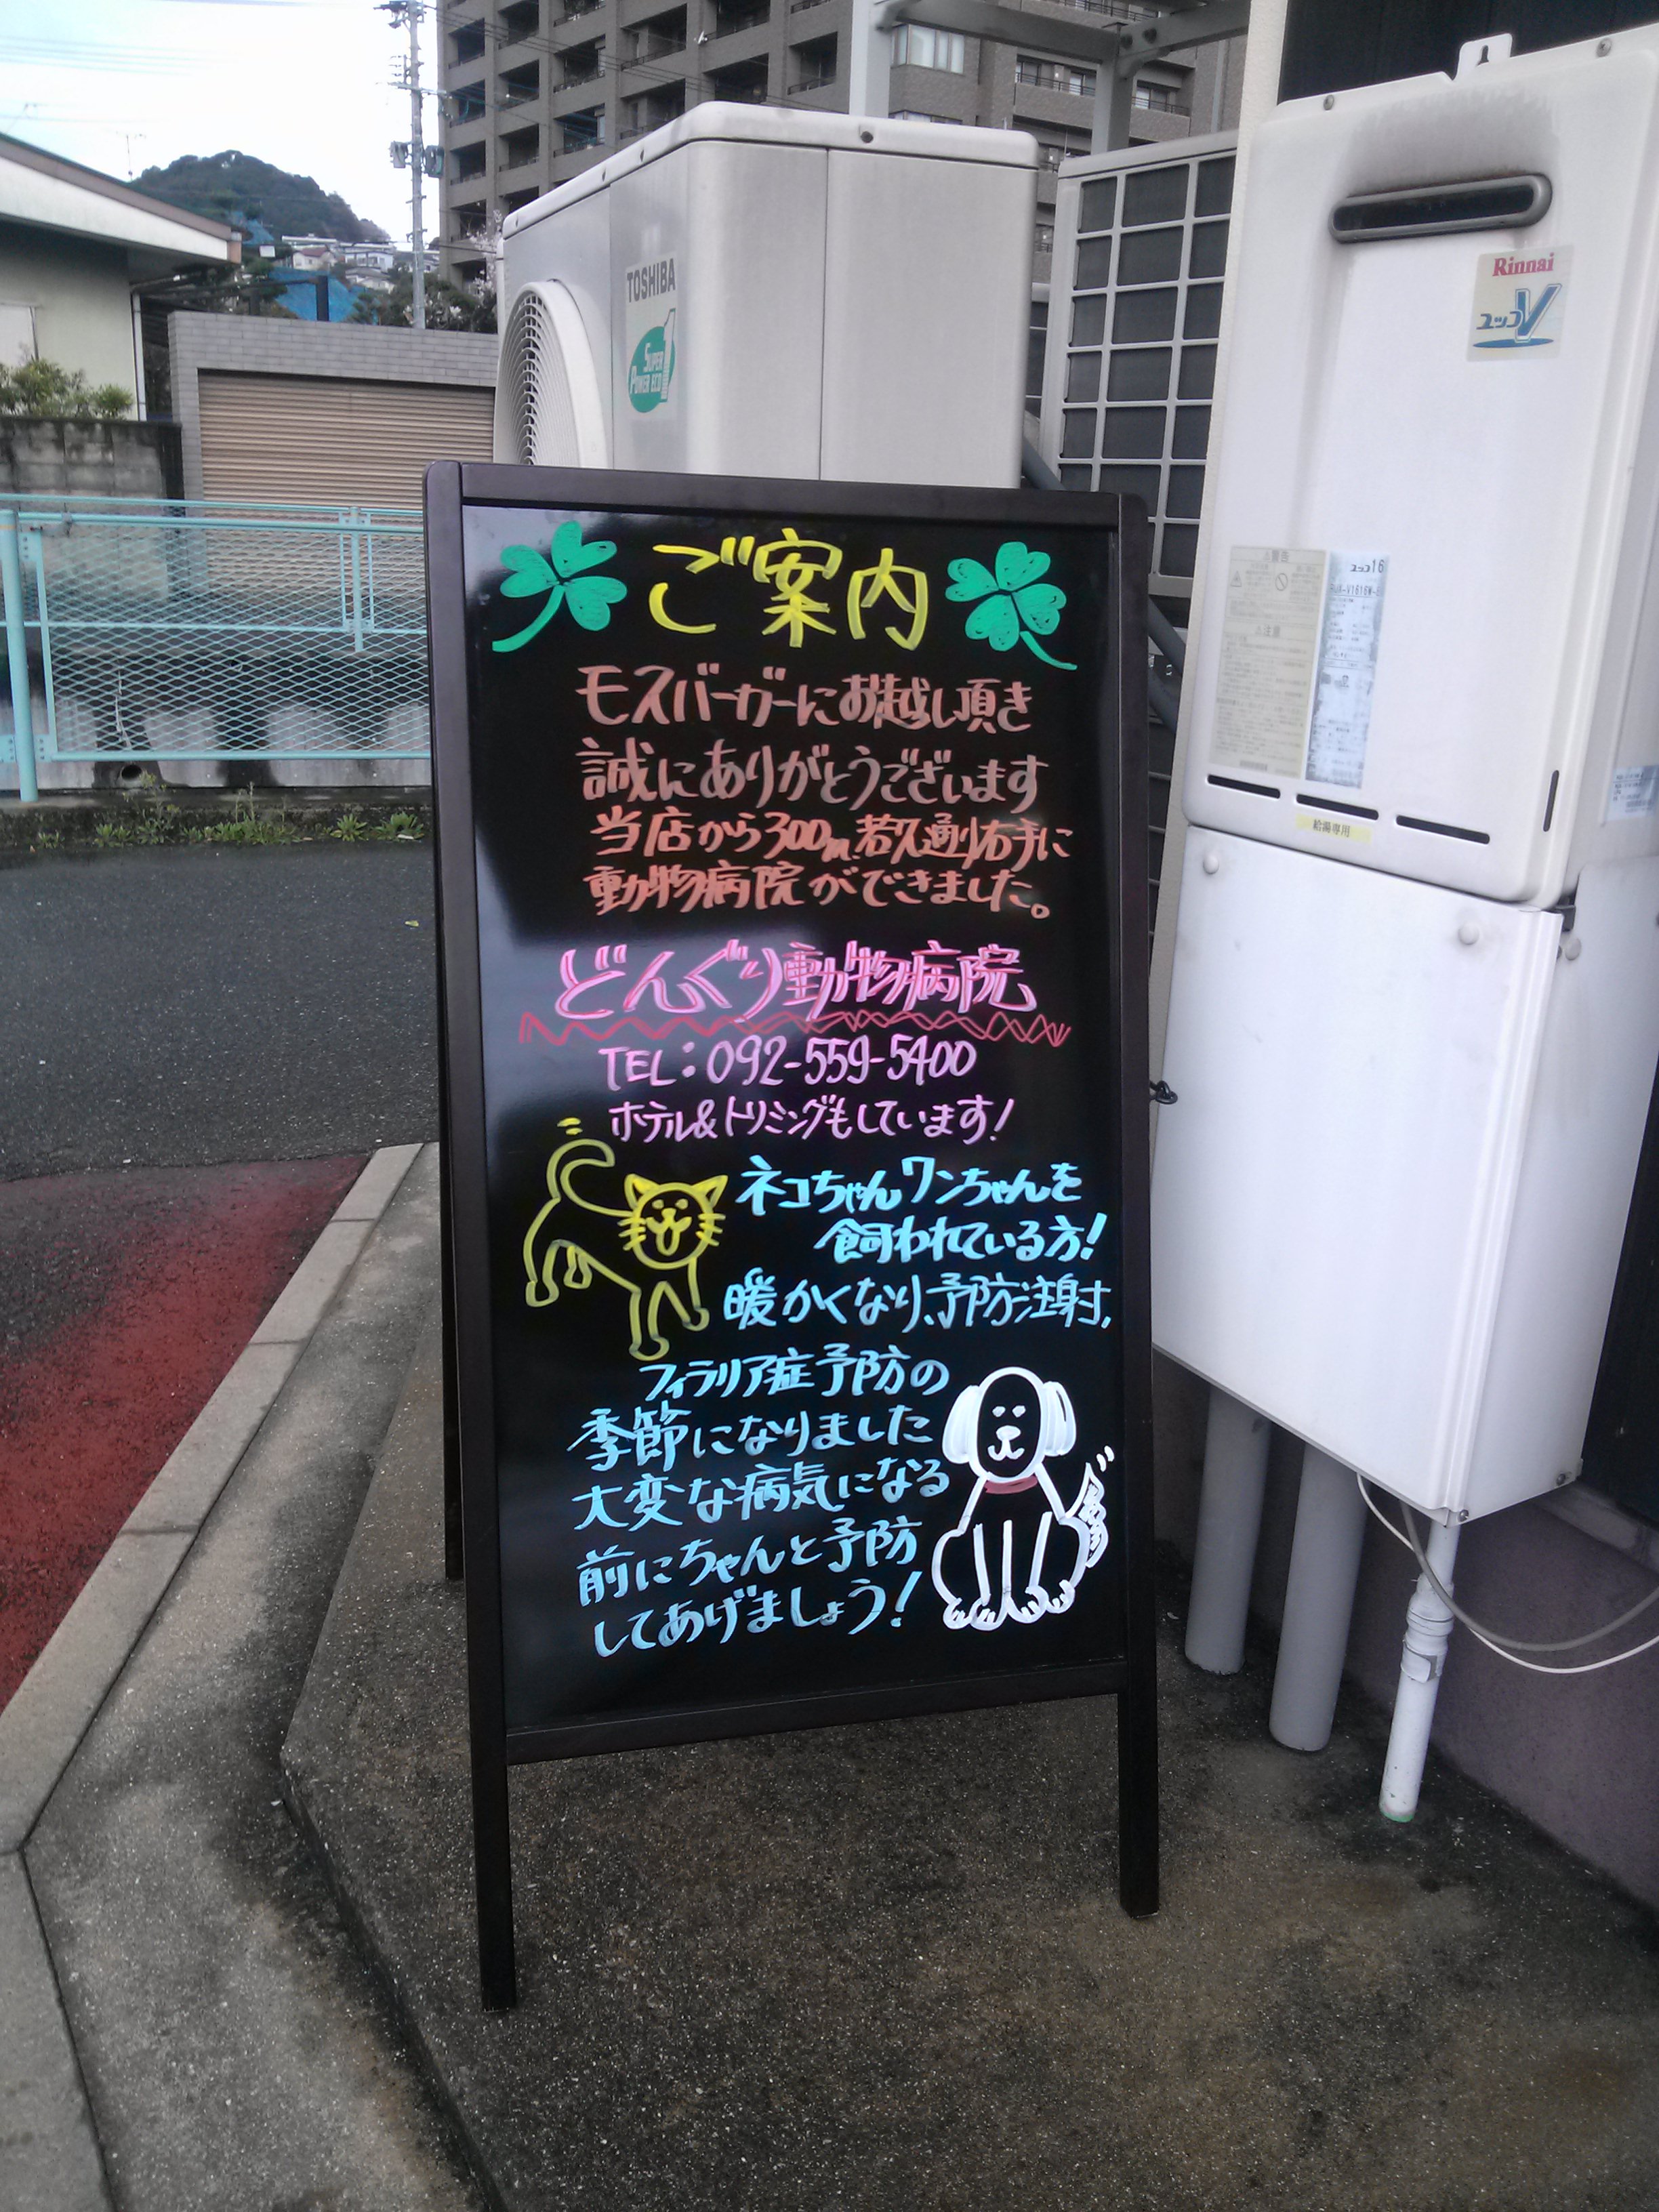 TOSHIBA
SUPER
POWER ECO
Rinnai
ユッコV
警告
注意
ユッコ16
給湯専用
ご案内
モスバーガーにお越し頂き
誠にありがとうございます
当店から300m.若久通り右手に
動物病院ができました。
どんぐり動物病院
TEL:092-559-5400
ホテル&トリミングもしています!
ネコちゃんワンちゃんを
飼われている方!
暖かくなり、予防注射,
フィラリア症予防の
季節になりました
大変な病気になる
前にちゃんと予防
してあげましょう!